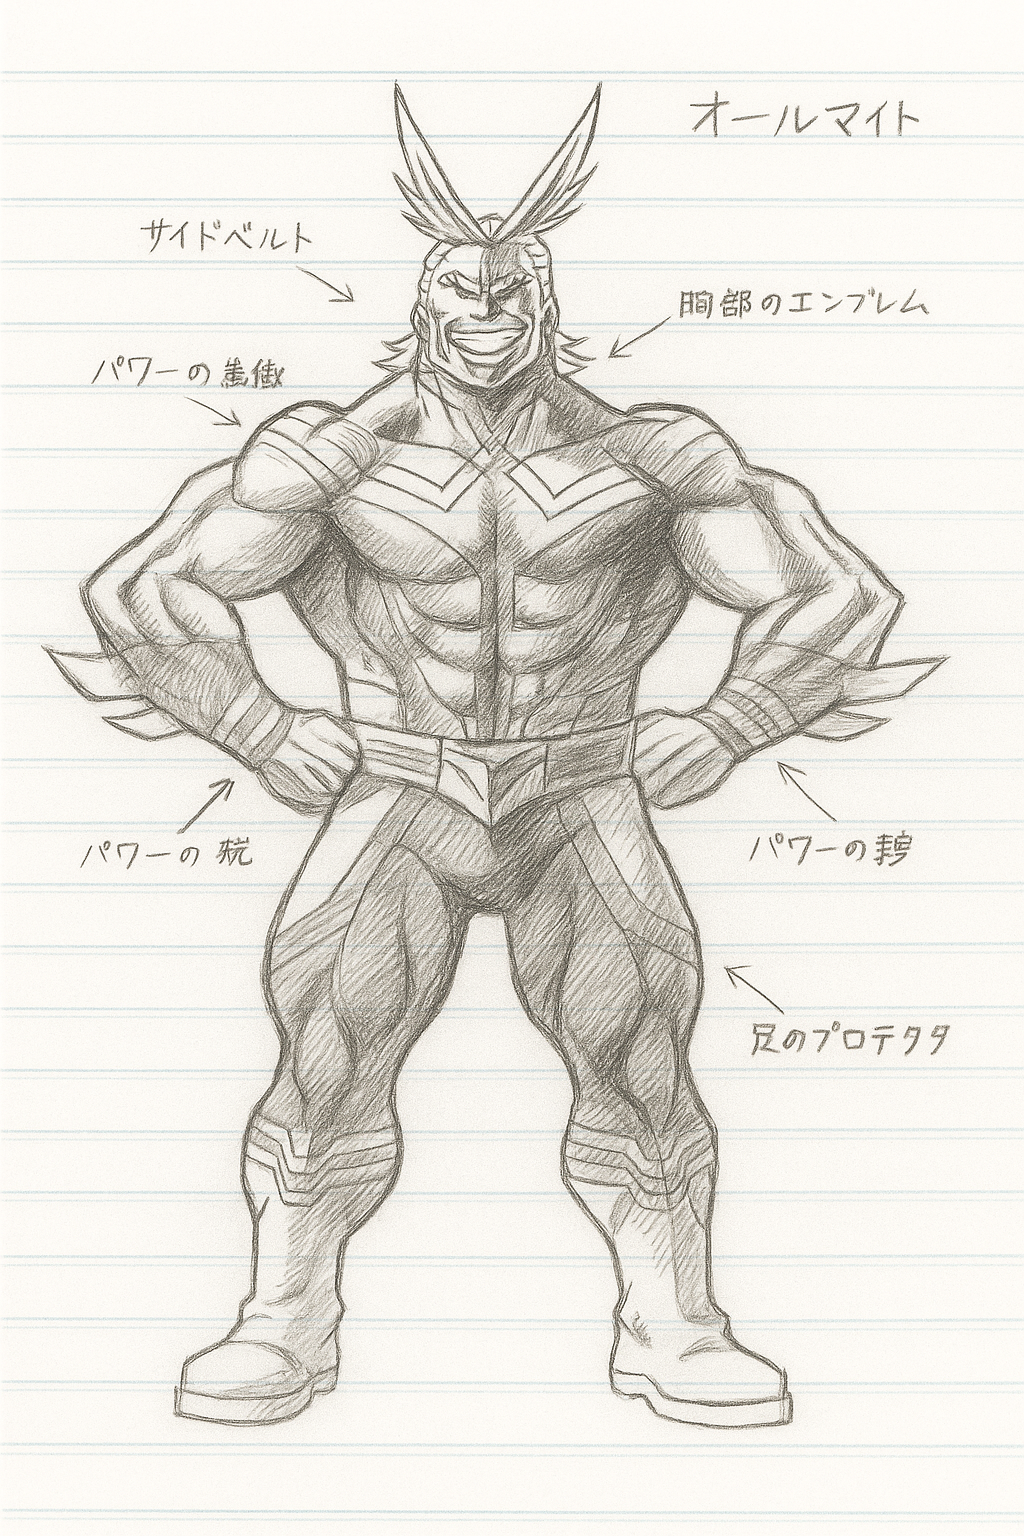 オールマイト
サイドベルト
胸部のエンブレム
パワーの
パワーの
パワーの
足のプロテクタ